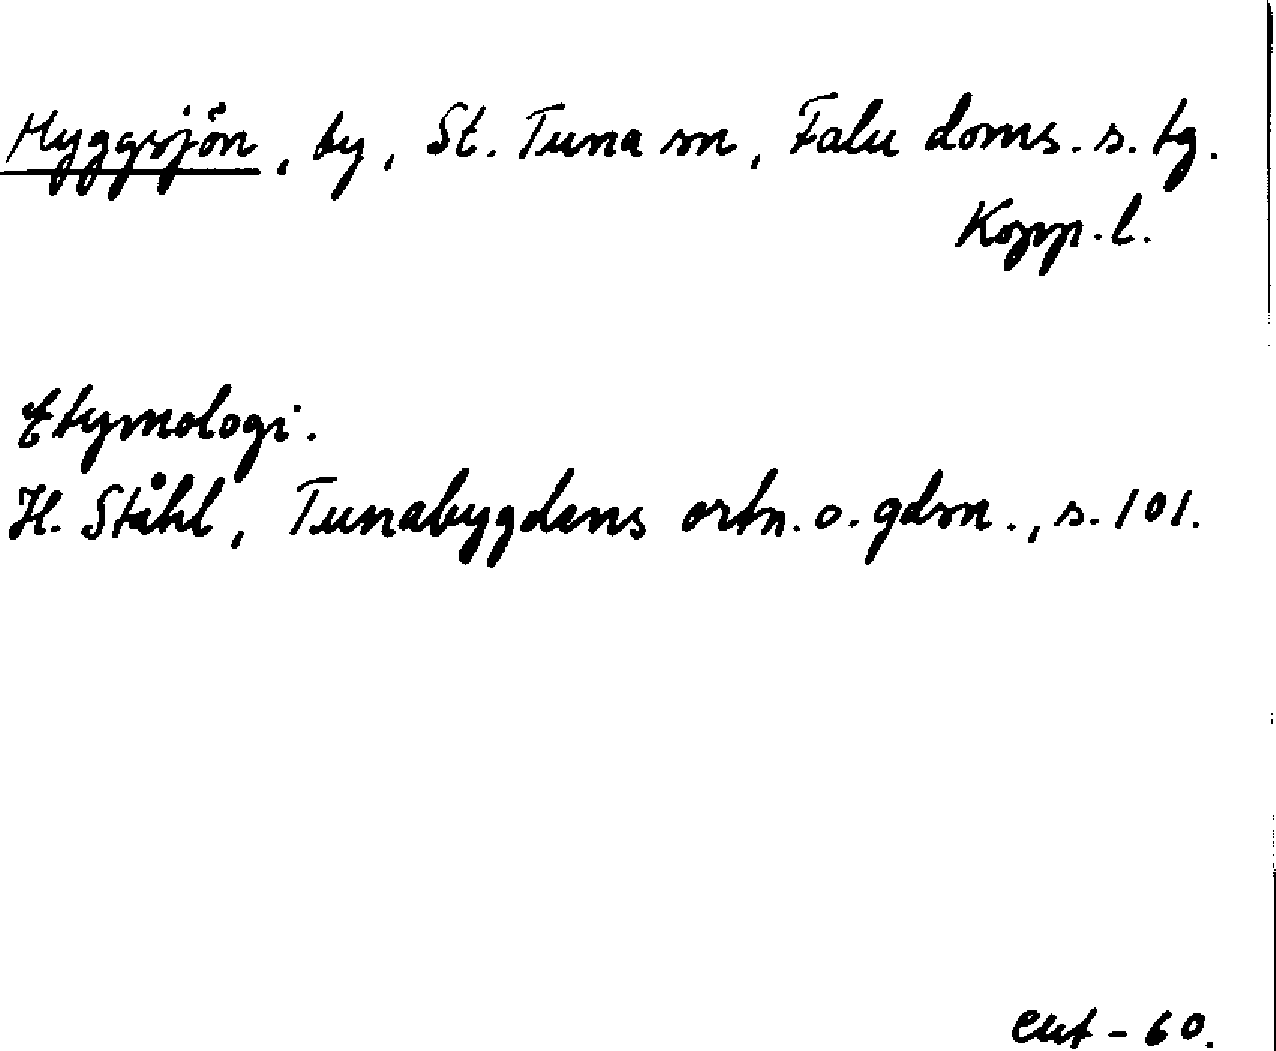 Myggsjön, by, St. Tuna sn, Falu doms. s. tg.
Kopp. l.
Etymologi.
H. Ståhl, Tunabygdens ortn. o. gdsn., s. 101.
- 60.